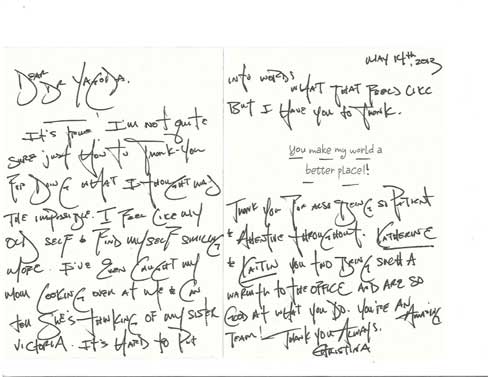 Dear
Dr Yagoda.
It's True! I'm not quite
sure just How to Thank-you
For Doing what I thought was
The impossible. I Feel like my
old self & Find myself smiling
more. I've Even Caught my
mom looking over at me & can
tell she's thinking of my sister
Victoria. It's Hard to Put
May 14th, 2013
into words
what that Feels like
But I Have you to Thank.
You make my world a
better place!!
Thank you For also Being so Patient
& Attentive throughout. Katherine
& Kaitlin you two Bring such a
warmth to the office and are so
good at what you do. You're An Amazing
Team! Thank you Always.
Christina